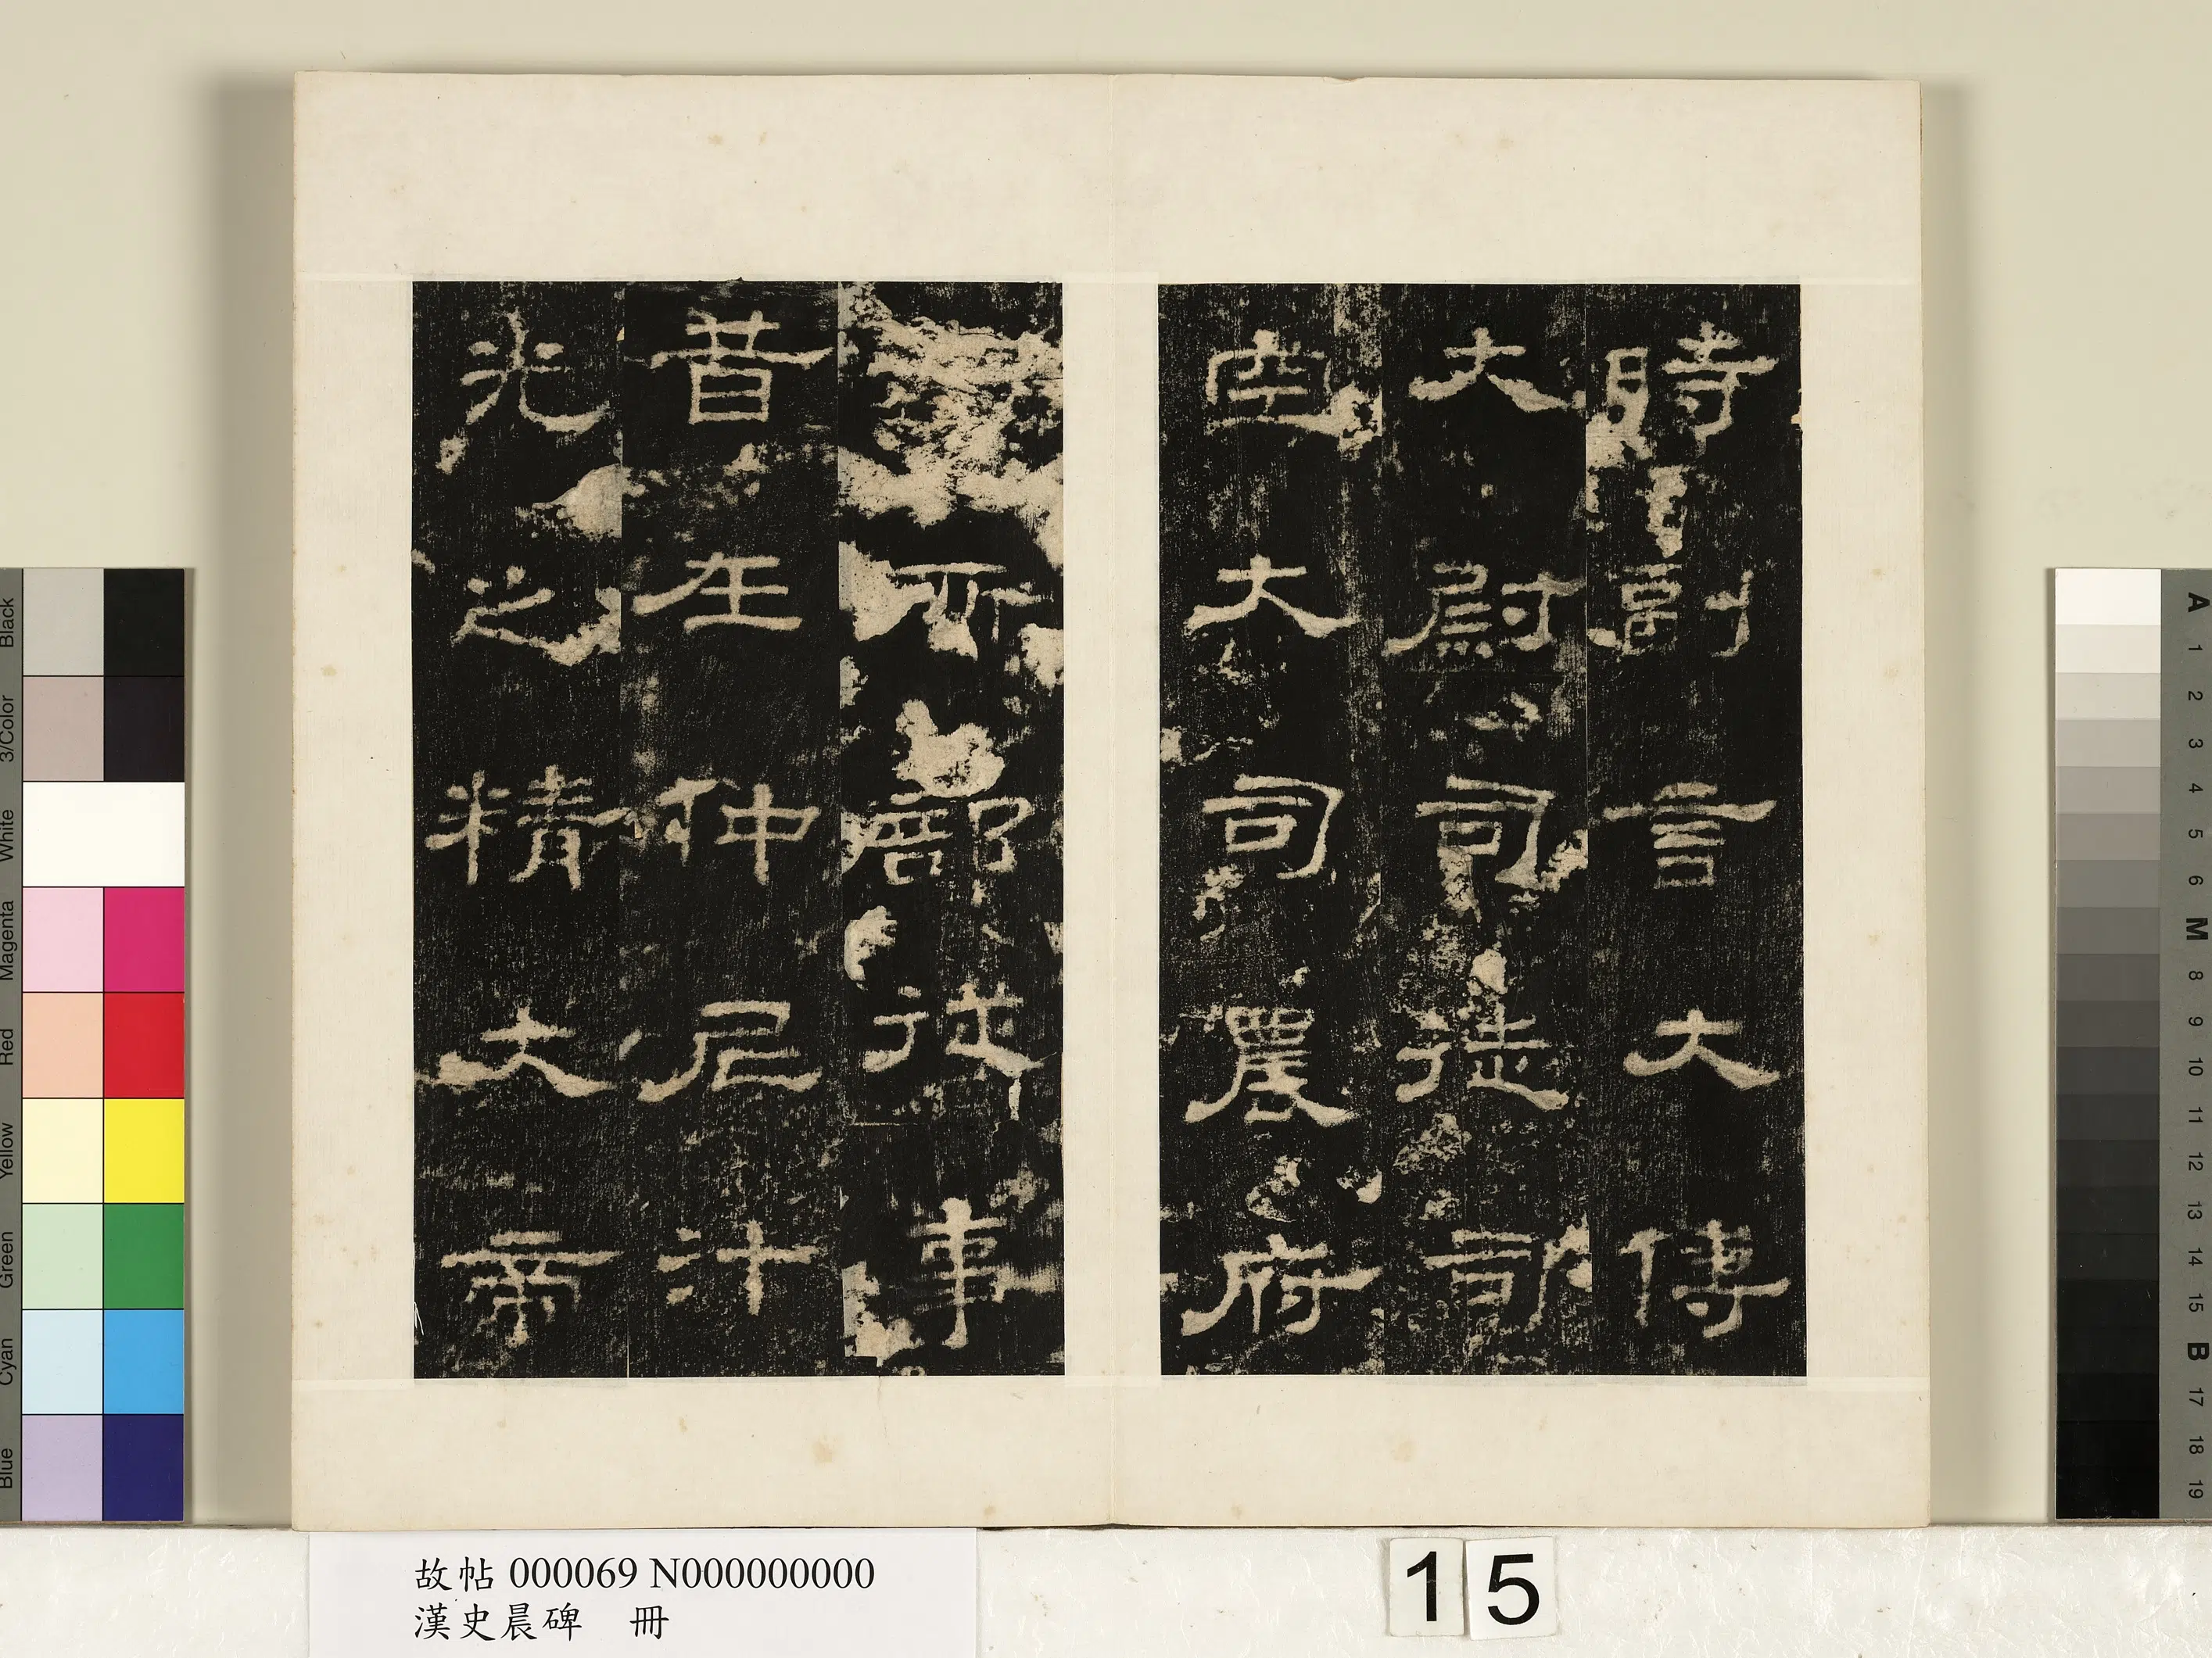 時副言大傅
大尉司徒司
空大司農府
所部從事
昔在仲尼汁
光之精大帝
故帖 000069 N000000000
漢史晨碑 冊
15
Black
3/Color
White
Magenta
Red
Yellow
Green
Cyan
Blue
A
1
2
3
4
5
6
M
8
9
10
11
12
13
14
15
B
17
18
19